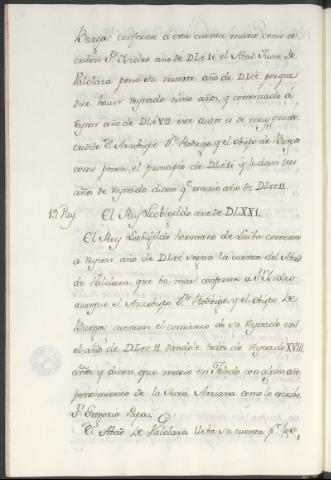 Burgos conforme á esta cuenta murio como es-
criben Sⁿ Isidro año de
Valclara pone su muerte año de porque
dice haver reynado cinco años, y comenzado á
reynar año de este autor es de muy grande
credito el Arzobispo Dⁿ Rodrigo, y el obispo de Burgos
como ponen, el principio de y le dan tres
años de reynado dicen qᵉ murió año de
19 Rey El Rey Leobigildo año de DLXXI.
El Rey Leobigildo hermano de Liuba comenzo
a reynar año de segun la cuenta del Abad
de Valclara, que va mas conforme a Sⁿ Isidro
aunque el Arzobispo Dⁿ Rodrigo, y el obispo de
Burgos cuentan el comienzo de su Reynado en
el año de dandole todos de reynado XVIII
años, y dicen que murio en Toledo con algun arre-
pentimiento de la Secta Arriana como lo escribe
Sⁿ Gregorio Papa.
El Abad de Valclara lleba su cuenta pʳ los